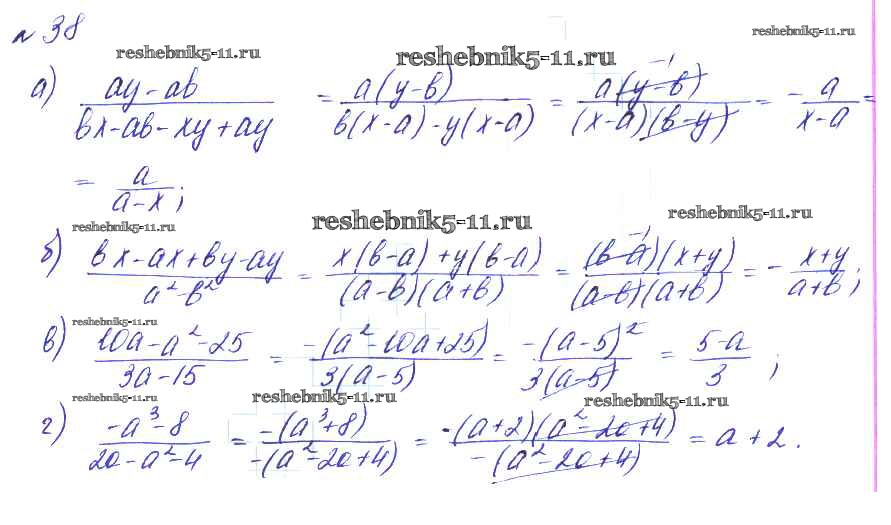 № 38
reshebnik5-11.ru reshebnik5-11.ru reshebnik5-11.ru
а) (ay-ab)/(bx-ab-xy+ay) = a(y-b)/(b(x-a)-y(x-a)) = a(y-b)⁻¹/((x-a)(b-y)) = -a/(x-a) =
= a/(a-x);
reshebnik5-11.ru reshebnik5-11.ru reshebnik5-11.ru
б) (bx-ax+by-ay)/(a²-b²) = (x(b-a)+y(b-a))/((a-b)(a+b)) = (b-a)⁻¹(x+y)/((a-b)(a+b)) = -(x+y)/(a+b);
reshebnik5-11.ru
в) (10a-a²-25)/(3a-15) = -(a²-10a+25)/(3(a-5)) = -(a-5)²/(3(a-5)) = (5-a)/3;
reshebnik5-11.ru reshebnik5-11.ru reshebnik5-11.ru
г) (-a³-8)/(2a-a²-4) = -(a³+8)/(-(a²-2a+4)) = -(a+2)(a²-2a+4)/(-(a²-2a+4)) = a+2.